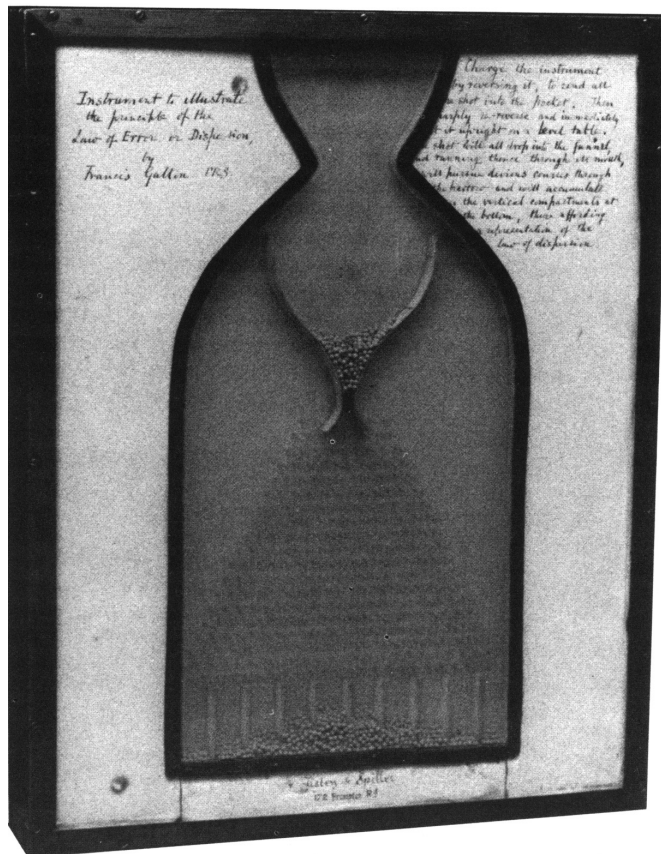 Instrument to illustrate
the principle of the
Law of Error or Dispersion,
by
Francis Galton FRS.
Charge the instrument
by reversing it, to send all
shot into the pocket. Then
sharply re-reverse and immediately
set it upright on a level table.
shot will all drop into the funnel,
and running thence through its mouth,
will pursue devious courses through
the harrow and will accumulate
in the vertical compartments at
the bottom, there affording
a representation of the
law of dispersion
Tisley & Spiller
172 Brompton Rd